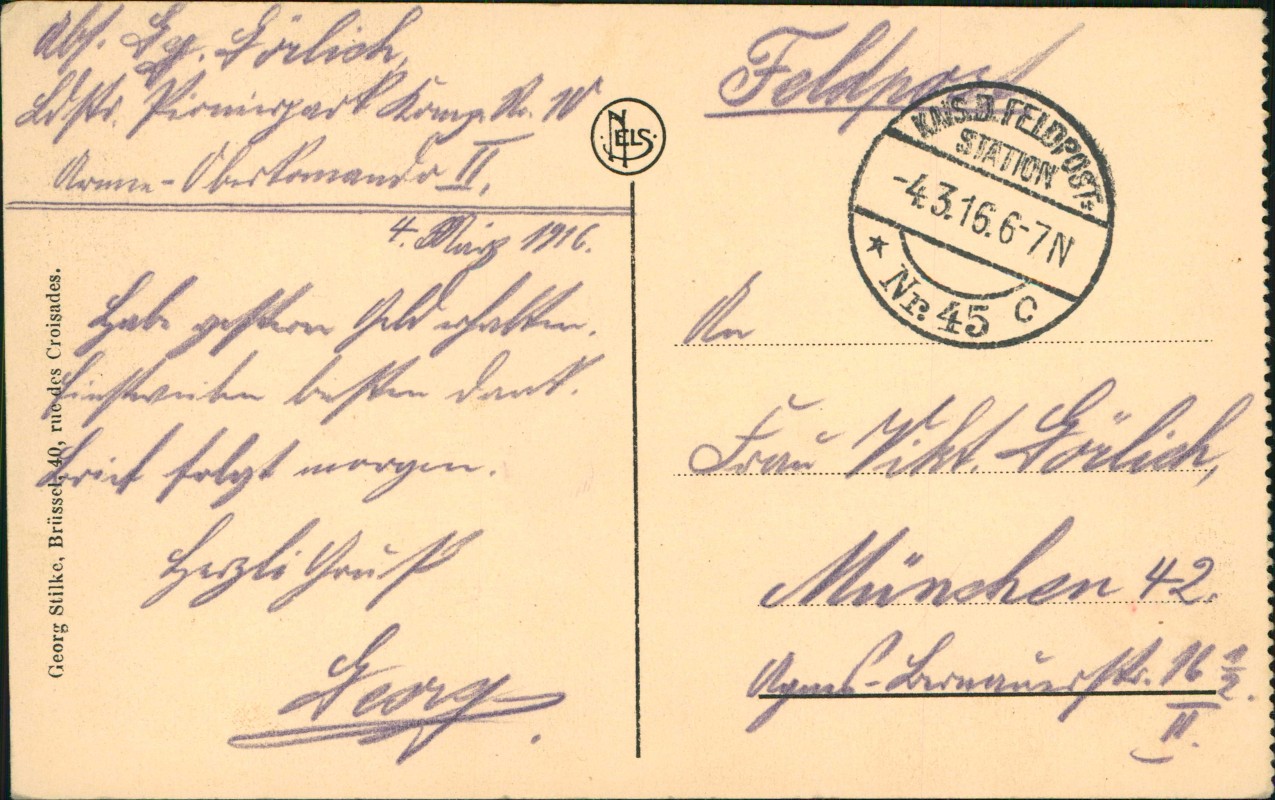 Abs. Gg. Görlich,
Ldstr. Pionierpark Komp. No. 10
Armee-Oberkomando II.
4. März 1916.
Habe gestern Geld erhalten.
Einstweilen besten Dank.
Brief folgt morgen.
Herzli Gruß
Georg
Georg Stilke, Brüssel, 40, rue des Croisades.
NELS
Feldpost
K.D. FELDPOST-
STATION
-4.3.16.6-7N
* Nr. 45 C
An
Frau Vikt. Görlich,
München 42.
Agnes-Bernauerstr. 16 1/2.
II.